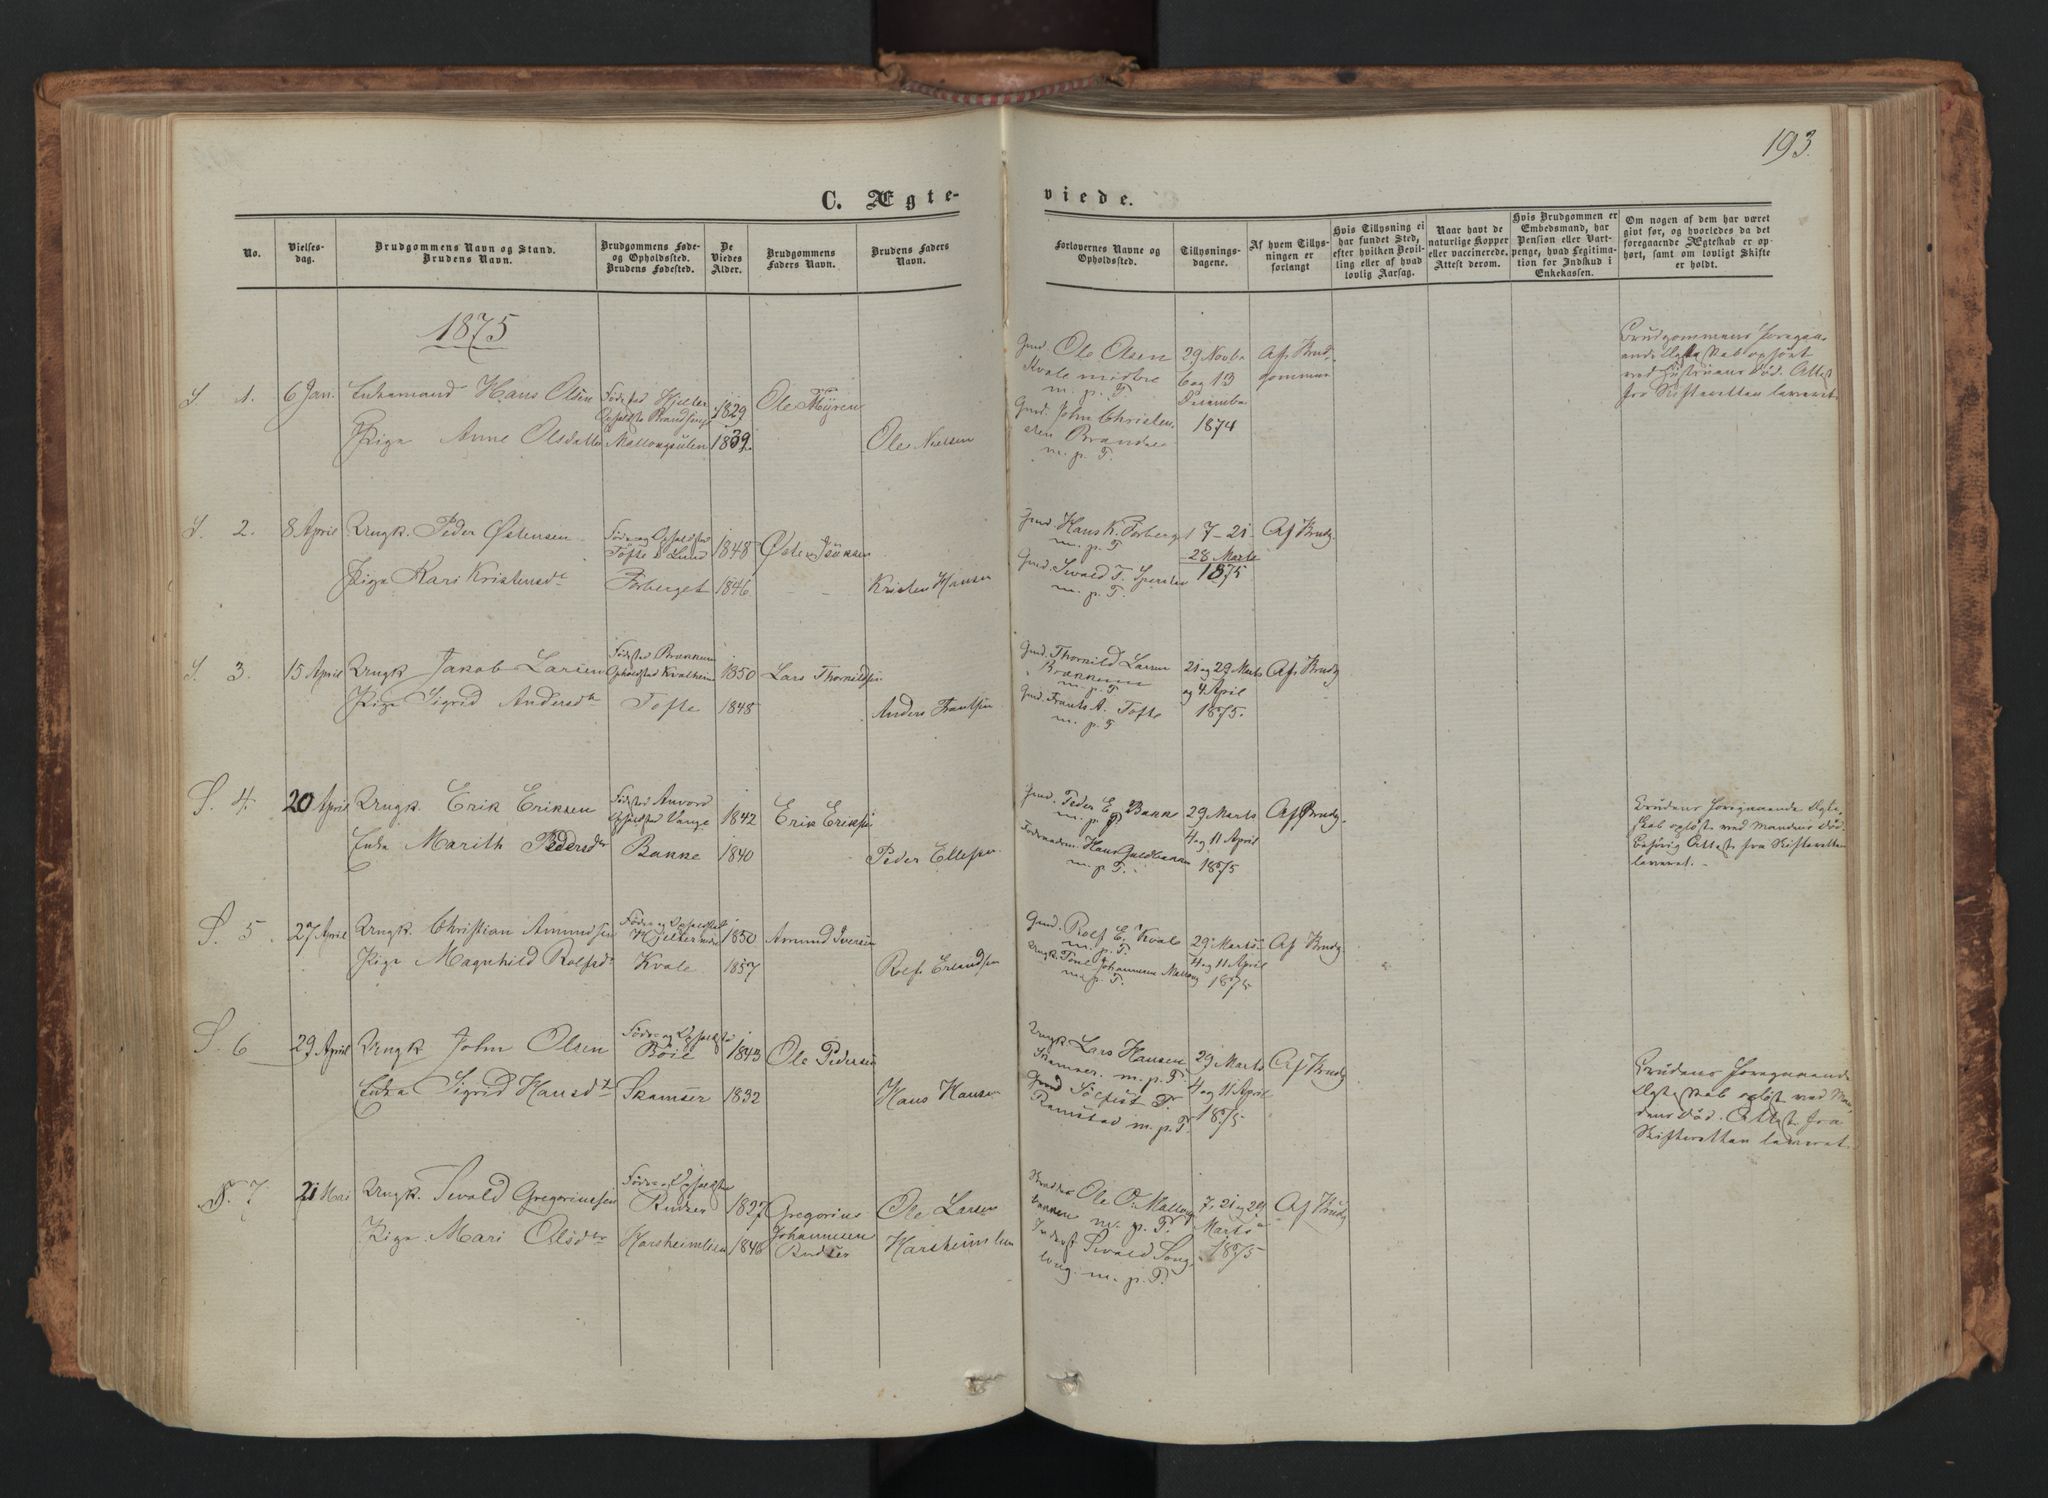 193.
C. Ægte-
viede.
No.
Vielses-
dag.
Brudgommens Navn og Stand.
Brudens Navn.
Brudgommens Føde-
og Opholdssted.
Brudens Fødested.
De
Viedes
Alder.
Brudgommens
Faders Navn.
Brudens Faders
Navn.
Forlovernes Navne og
Opholdssted.
Tillysnings-
dagene.
Af hvem Tillys-
ningen er
forlangt
Hvis Tillysning ei
har fundet Sted,
efter hvilken Bevil-
ling eller af hvad
lovlig Aarsag.
Naar havt de
naturlige Kopper
eller vaccinerede.
Attest derom.
Hvis Brudgommen er
Embedsmand, har
Pension eller Vart-
penge, hvad Legitima-
tion for Indskud i
Enkekassen.
Om nogen af dem har været
givt før, og hvorledes da det
foregaaende Ægteskab er op-
hørt, samt om lovligt Skifte
er holdt.
1875
S. 1.
6 Jan.
Enkemand Hans Olsen
Pige Anne Olsdatter
Fødested Hjelter
Mallongsulen
1829
1839.
Ole Myren
Ole Nielsen
Gmd. Ole Olsen
Kvale midtre
m. p. T.
Gmd. John Christen-
sen
m. p. T.
29 Novbr
6 og 13
Decembr
1874
Af Brud-
gommen
Brudgommens foregaa-
ende Ægteskab opløst
ved Hustruens Død. Attest
fra Skifteretten leveret.
S. 2.
8 April
Ungk. Peder Østensen
Pige Kari Kristensdr
Føde og Opholdssted
Tofte & Lund
Forberget
1848
1846.
Kristen Hansen
Gmd. Hans K. Forberg
m. p. T
Gmd. Sivald T.
m. p. T.
17 - 21
28 Marts
1875
Af Brudg.
S. 3.
15 April
Ungk. Jakob Larsen
Pige Sigrid Andersdr
Fødested Brækken
Opholdssted Kvalheim
Tofte
1850
1848
Lars Thornildsen
Anders Frantsen
Gmd. Thornild Larsen
Brækken
m. p. T
Gmd. Frants A. Tofte
m. p. T
21 og 29 Marts
og 4 April
1875.
Af Brudg
S. 4.
20 April
Ungk. Erik Eriksen
Enke Marith Pedersdr
Fødested
Opholdssted Vange
Bakke
1842
1840
Erik Eriksen
Peder Ellefsen
Gmd. Peder E. Bakke
m. p. T
m. p. T.
29 Marts
4 og 11 April
1875
Af Brudg.
Brudens foregaaende Ægte-
skab opløst ved Mandens Død.
Behørig Attest fra Skifteretten
leveret.
S. 5.
27 April
Ungk. Christian Amundsen
Pige Magnhild Rolfsdr
Føde og Opholdssted
Hjelter
Kvale
1850
1857
Amund Iversen
Rolf Erlandsen
Gmd. Rolf E. Kvale
m. p. T.
Ungk. Johannesen Mallong
m. p. T.
29 Marts
4 og 11 April
1875
Af Brudg
S. 6
29 April
Ungk John Olsen
Enke Sigrid Hansdr
Føde og Opholdssted
Bøie
Skamser
1843
1832
Ole Pedersen
Hans Hansen
Ungk. Lars Hansen
Skamser. m. p. T.
Gmd Sølfest T.
Ramstad m. p. T.
29 Marts
4 og 11 April
1875
Af Brudg
Brudens foregaaende
Ægteskab opløst ved Man-
dens Død. Attest fra
Skifteretten leveret.
S. 7
21 Mai
Ungk. Sivald Gregoriussen
Pige Mari Olsdtr
Føde og Opholdssted
Rudser
Harsheimlien
1827
1846
Gregorius
Johannesen
Rudser
Ole Larsen
Harsheimlien
Ole O. Mallong
bakken m. p. T.
Sivald Song-
long. m. p. T.
7, 21 og 29
Marts
1875
Af Brudg